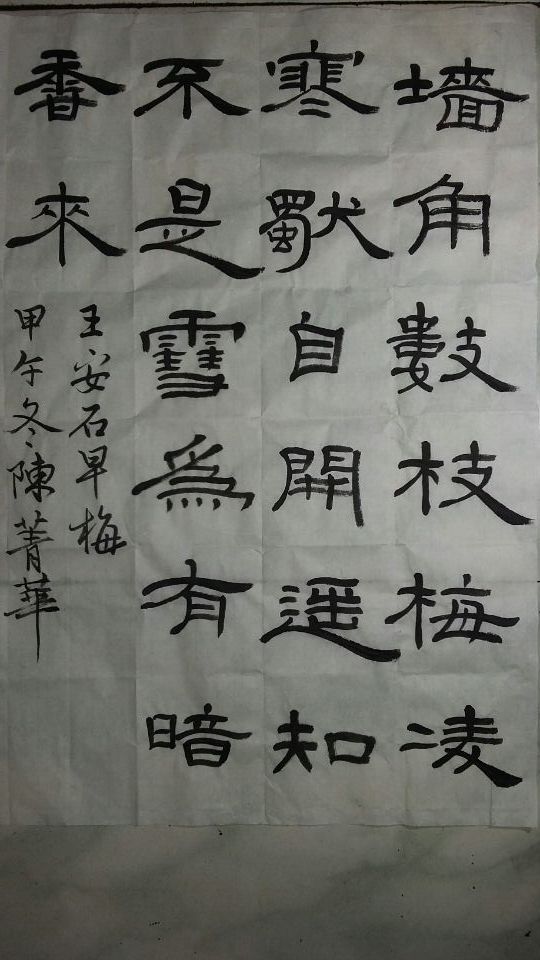 墙角數枝梅凌
寒獨自開遥知
不是雪為有暗
香來
王安石早梅
甲午冬陳菁華